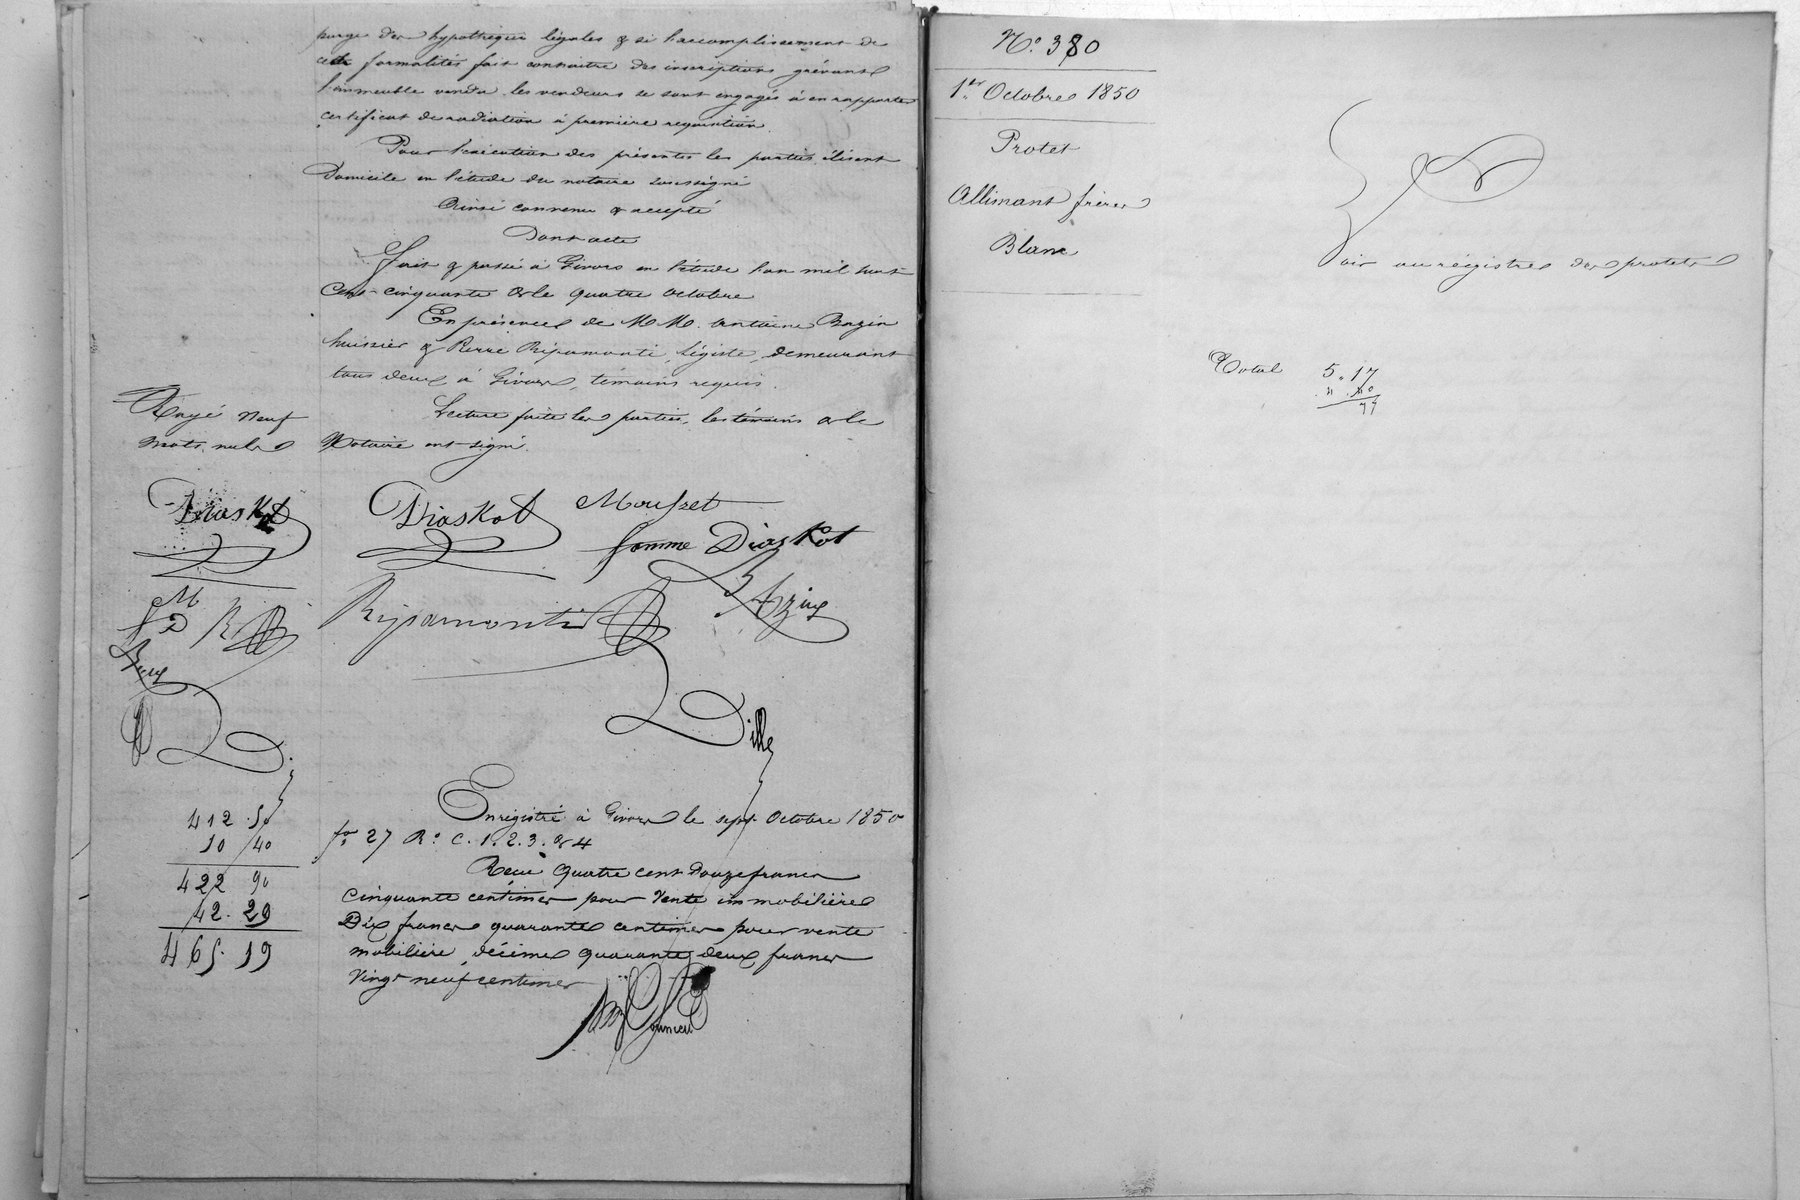 purge des hypothèques légales & si l'accomplissement de
cette formalités fait connaitre des inscriptions grévant
l'immeuble vendu les vendeurs se sont engagés à en rapporter
certificat de radiation à première requisition.
Pour l'exécution des présentes les parties élisent
Domicile en l'étude du notaire soussigné
Ainsi convenu & accepté
Dont acte
Fait & passé à Givors en l'étude l'an mil huit
Cent-cinquante & le quatre octobre
En présence de MM. Antoine Bazin
huissier & Pierre Ripamonti, légiste, demeurant
tous deux à Givors, témoins requis.
Lecture faite les parties, les témoins & le
Notaire ont signé.
Rayé neuf
mots nuls
Diaskot
Diaskot
Mousset
femme Diaskot
M
f D R
Ripamonti
Bazin
D
Dille
412.50
10 40
422 90
42.29
465.19
Enregistré à Givors le sept Octobre 1850
fo 27 Ro C. 1. 2. 3. & 4
Reçu quatre cent Douze francs
cinquante centimes pour vente immobilière
Dix francs quarante centimes pour vente
mobilière, décime quarante deux francs
vingt neuf centimes
No. 380
1er Octobre 1850
Protet
Allimant frères
Blanc
Voir au régistre des protets
Total 5.17
77